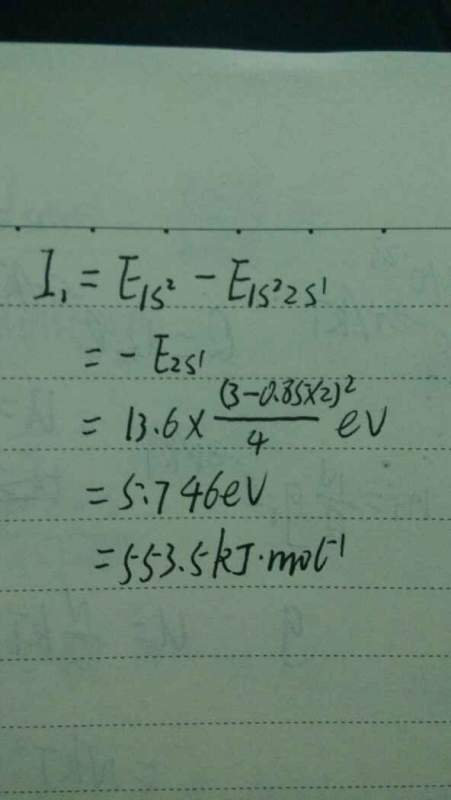 I₁ = E1s² - E1s²2s¹
= - E2s¹
= 13.6 × (3-0.85×2)²/4 eV
= 5.746eV
= 553.5 kJ·mol⁻¹